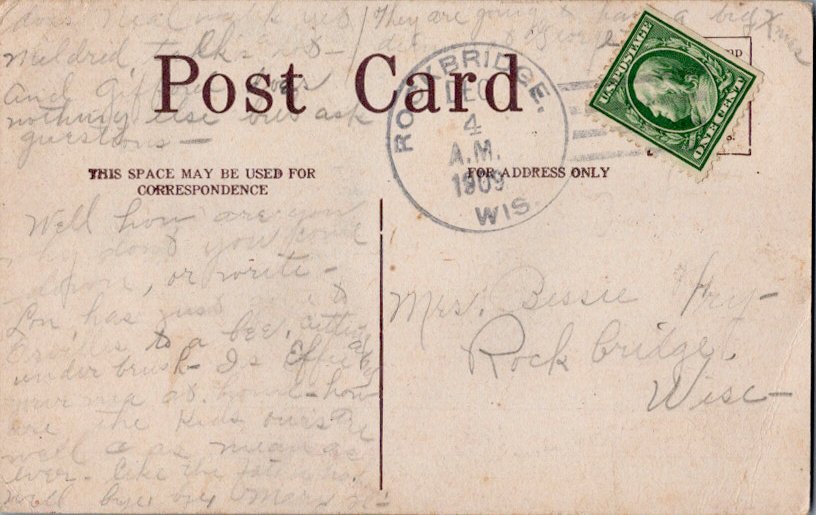 does Neal walk yet
Mildred talks lots—
and
nothing else but ask
questions—
They are going to have a big Xmas
George
Post Card
ROCKBRIDGE.
DEC
4
A.M.
1909
WIS.
U.S. POSTAGE
ONE CENT
THIS SPACE MAY BE USED FOR
CORRESPONDENCE
FOR ADDRESS ONLY
Well how are you
why don't you come
down, or write—
Lon, has just
to a bee, cutting
under brush— Is Effie
your ma at home— how
are the kids ours are
well & as mean as
ever— like the
Well bye bye
Mrs. Bessie Fry—
Rockbridge,
Wisc—